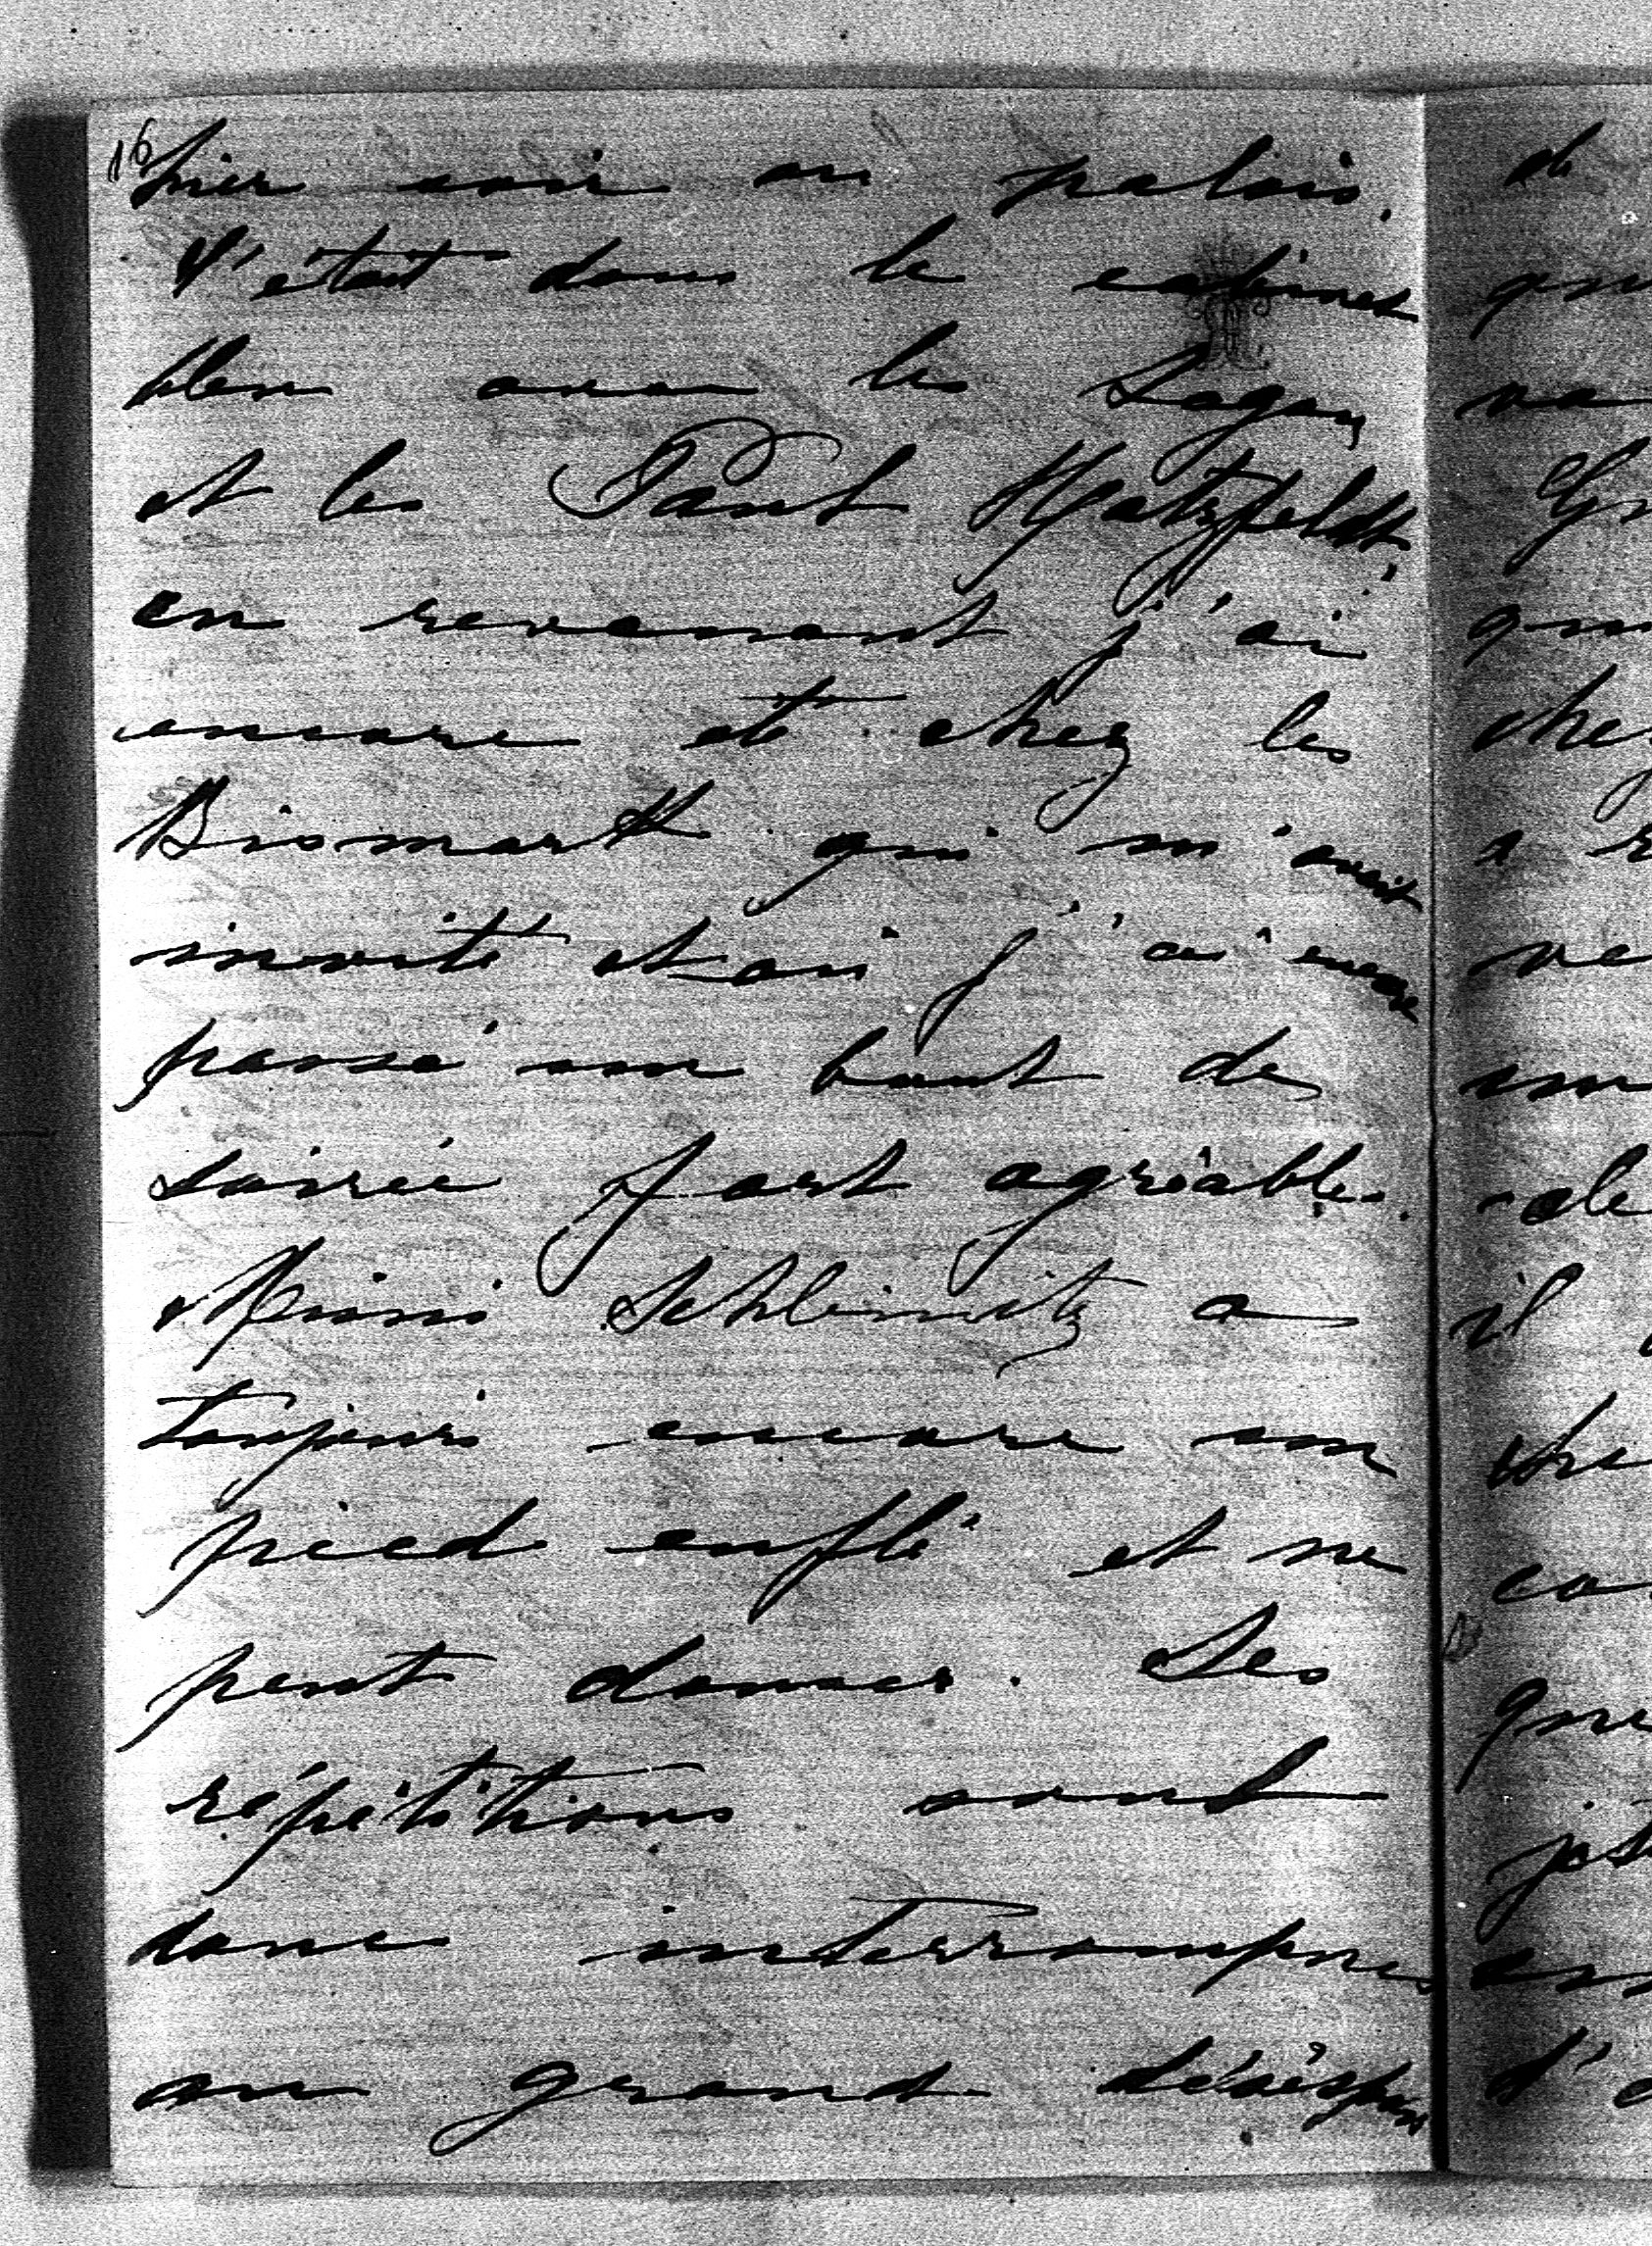 16
hier soir au palais.
C'était dans le cabinet
bleu avec les Sagan
et les Paul Hatzfeldt,
en revenant j'ai
encore été chez les
Bismark qui m'avait
invité et où j'ai encore
passé un bout de
soirée fort agréable.
Mimi Schleinitz a
toujours encore un
pied enflé et ne
peut danser. Les
répétitions sont
donc interrompues
au grand désespoir